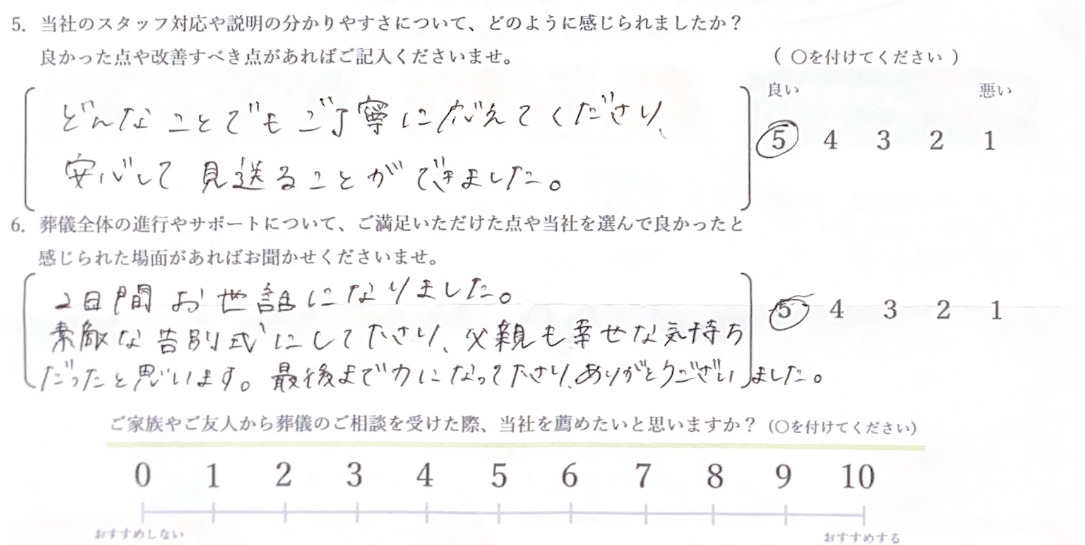 5. 当社のスタッフ対応や説明の分かりやすさについて、どのように感じられましたか？
良かった点や改善すべき点があればご記入くださいませ。
（ 〇を付けてください ）
良い 悪い
どんなことでもご丁寧に応えてくださり、
安心して見送ることができました。
5 4 3 2 1
6. 葬儀全体の進行やサポートについて、ご満足いただけた点や当社を選んで良かったと
感じられた場面があればお聞かせくださいませ。
2日間お世話になりました。
素敵な告別式にして下さり、父親も幸せな気持ち
だったと思います。最後まで力になって下さり、ありがとうございました。
5 4 3 2 1
ご家族やご友人から葬儀のご相談を受けた際、当社を薦めたいと思いますか？（〇を付けてください）
0 1 2 3 4 5 6 7 8 9 10
おすすめしない おすすめする